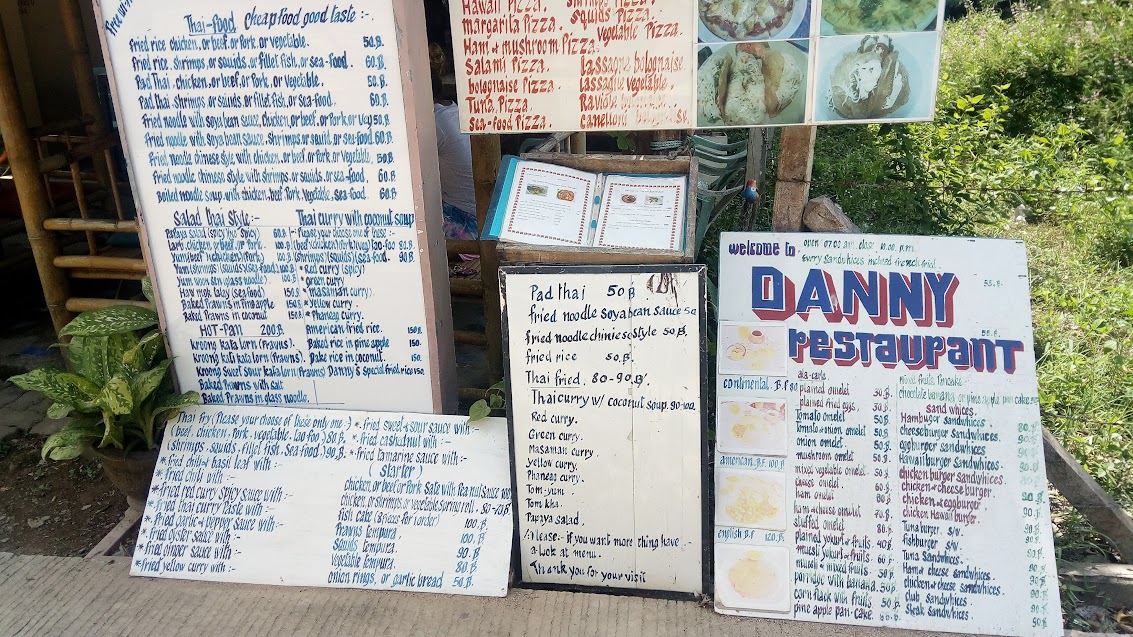 Free Wi-Fi
Thai-food Cheap food good taste :-.
Fried rice chicken, or beef, or Pork, or vegetable. 50.B
Fried rice, shrimps, or squids, or fillet fish, or sea-food. 60.B
Pad Thai, chicken, or beef, or Pork, or Vegetable. 50.B
Pad thai, shrimps or squids, or fillet, fish, or sea-food. 60.B.
Fried noodle with soya bean sauce, chicken, or beef, or Pork or Veg 50.B
Fried noodle with soya bean sauce, Shrimps or squid, or sea-food 60.B.
Fried noodle chinese style with chicken, or beef, or Pork, or Vegetable. 50.B
Fried noodle chinese style with shrimps, or squids, or sea-food. 60.B
Boiled noodle soup with chicken, beef, Pork, Vegetable, sea-food. 60.B
Salad thai style :-
Papaya salad (spicy Thai Spicy) 60.B
Larb chicken, or beef, or Pork. 100.B
Yum (beef) (chicken) (Pork) 100.B
Yum (shrimps) (squids) (sea-food) 100.B
Yum woon sen (glass noodle) 100.B
Haw mok talay (sea food) 150.B
Baked Prawns in Pineapple 150.B
Baked Prawns in coconut 150.B
HOT-Pan 200.B
Kroong kata lorn (Prawns).
Kroong kati kata lorn (Prawns)
Kroong Sweet Sour kata lorn (Prawns)
Baked Prawns with salt
Baked Prawns in glass noodle.
Thai curry with coconut soup
Please your choose one of these :-
(beef) (chicken) (Pork) (veg) (tao-foo) 80.B.
(shrimps) (squids) (sea-food). 90.B
* Red curry (spicy)
* Green curry
* masaman curry
* yellow curry.
* Phaneag curry.
American fried rice. 150.B.
Bake rice in pine apple 150.
Bake rice in coconut. 150.
Danny's special fried rice 150.
Hawaii Pizza.
margarita Pizza
Ham & mushroom Pizza.
Salami Pizza.
bolognaise Pizza.
Tuna Pizza.
Sea-food Pizza.
Shrimps Pizza.
Squids Pizza.
vegetable Pizza.
lassagne bolognaise
lassagne vegetable.
Raviola
canelloni
Thai fry (Please your choose of these only one :-)
(beef, chicken, Pork, vegetable, tao-foo) 80.B.
(shrimps, squids, fillet fish, sea-food.) 90.B.
* fried chili & basil leaf with :-
* Fried chili with :-
* fried red curry spicy sauce with :-
* Fried thai curry paste with :-
* Fried garlic & pepper sauce with :-
* fried oyster sauce with :-
* fried ginger sauce with :-
* fried yellow curry with :-
* fried sweet & sour sauce with :-
* fried cashednut with :-
* fried tamarine sauce with :-
(starter)
chicken, or beef, or Pork Sate with Pea nut sauce 100
chicken, or shrimps, or vegetable spring roll.
fish cake (5 Pieces for 1 order) 100.B.
Prawns tempura. 100.B.
Squids tempura. 90.B.
vegetable tempura. 80.B
onion rings, or garlic bread 50.B.
Pad thai 50 B.
fried noodle soya bean sauce 50
fried noodle chinise style 50.B.
fried rice 50.B.
Thai fried. 80-90.B.
Thai curry w/ coconut soup. 90-100.
Red curry.
Green curry.
Masaman curry.
yellow curry.
Phaneag curry.
Tom-yum.
Tom kha.
Papaya salad.
Please :- if you want more thing have :-
a-look at menu.
Thank you for your visit
welcome to open 07.00 a.m. close 10.00 p.m.
DANNY
RESTAURANT
continental. B.F 80
american. B.F. 100.B
english B.F 120.B.
ala-carte.
plained omelet 30.B.
plained fried eggs.
Tomato omelet
Tomato & onion omelet
onion omelet.
mushroom omelet
mixed vegetable omelet
cheese omelet
ham omelet
ham & cheese omelet
stuffed omelet
plained yogurt & fruits.
muesli yogurt & fruits.
muesli & mixed fruits.
porridge with banana.
corn flack with fruits.
pine apple pan-cake.
mixed fruits pancake
chocolate banana or pine apple pan cake
sand whices.
Hamburger sandwhices.
cheeseburger sandwhices.
eggburger sandwhices.
Hawaii burger sandwhices.
chicken burger sandwhices.
chicken & cheese burger.
chicken & eggburger
chicken Hawaii burger.
Tuna burger. s/w.
fishburger. s/w.
Tuna sandwhices.
Ham & cheese sandwhices.
chicken & cheese sandwhices.
club sandwhices.
Steak sandwhices.